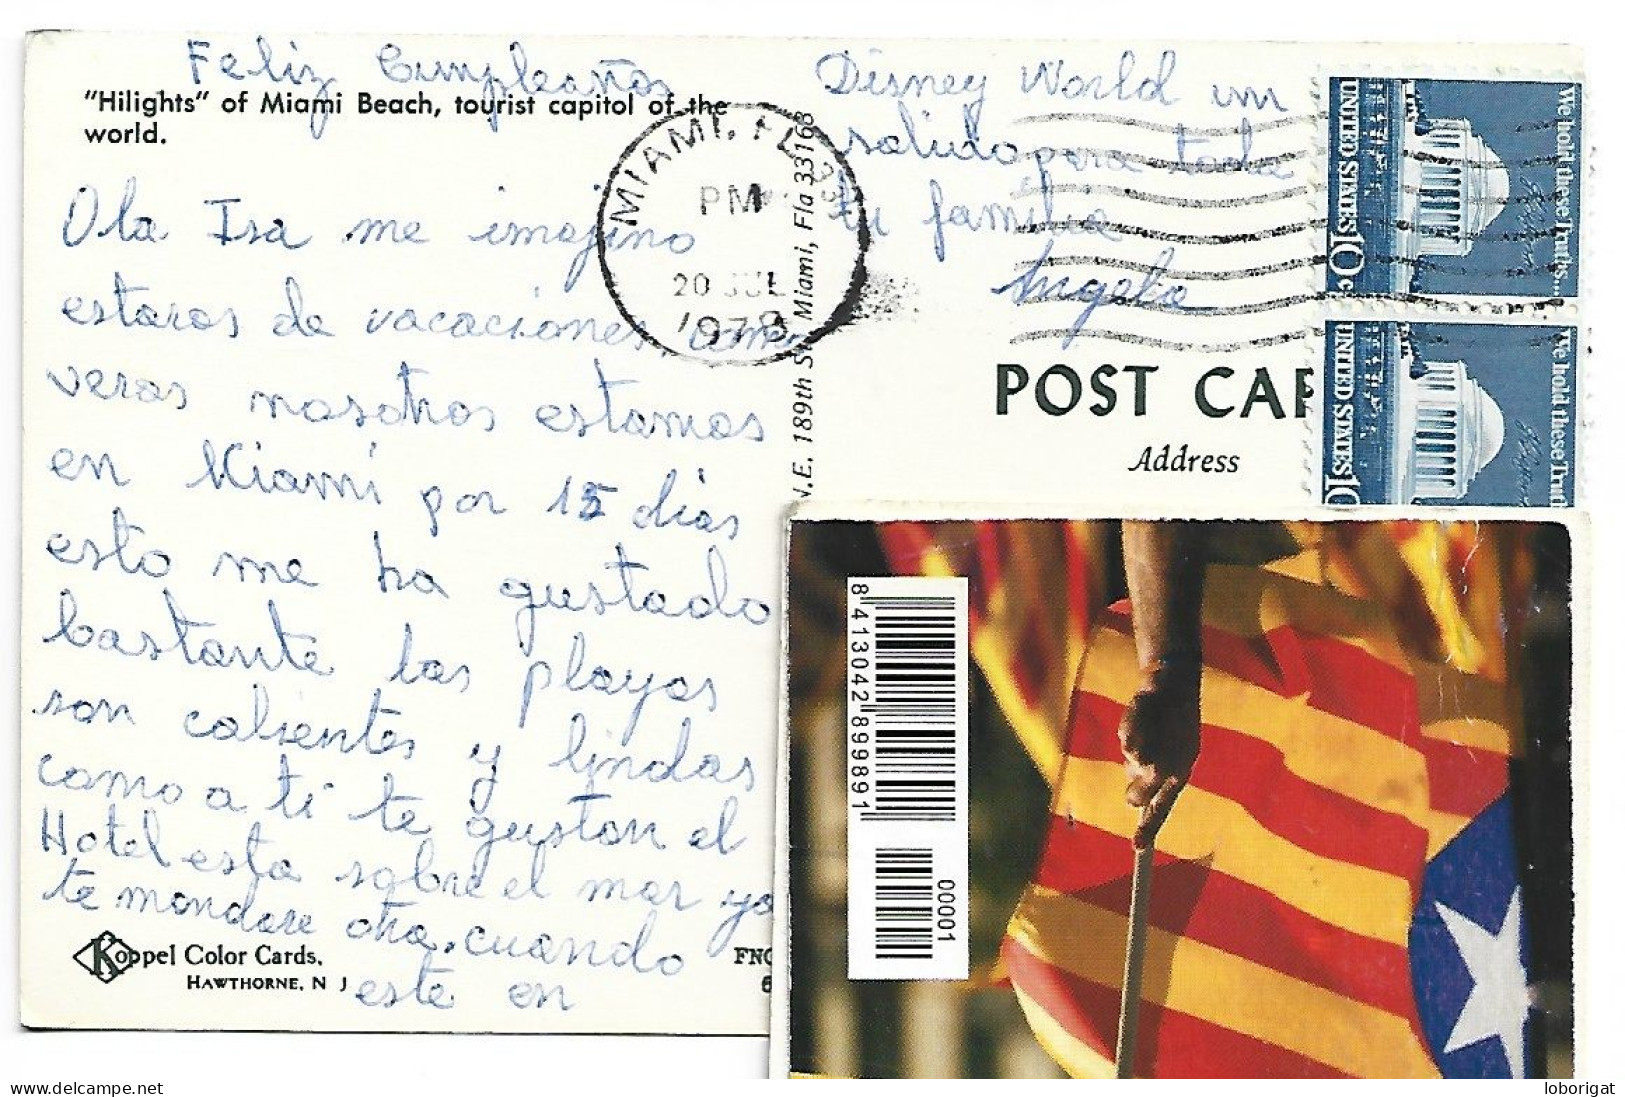 Feliz Cumpleaños
"Hilights" of Miami Beach, tourist capitol of the
world.
Ola Isa me imagino
estaras de vacaciones, como
veras nosotros estamos
en Miami por 15 dias
esto me ha gustado
bastante las playas
son calientes y lindas
como a ti te gustan el
Hotel esta sobre el mar yo
te mandare otra cuando
este en
Koppel Color Cards,
HAWTHORNE, N J
MIAMI, FL
PM
20 JUL
1978
N.E. 189th St. Miami, Fla 33168
Disney World un
saludo para toda
tu familia
Angela
POST CAR
Address
We hold these Truths...
UNITED STATES 10c
We hold these Truth
UNITED STATES 10
8 413042 899891
00001
delcampe.net
loborigat